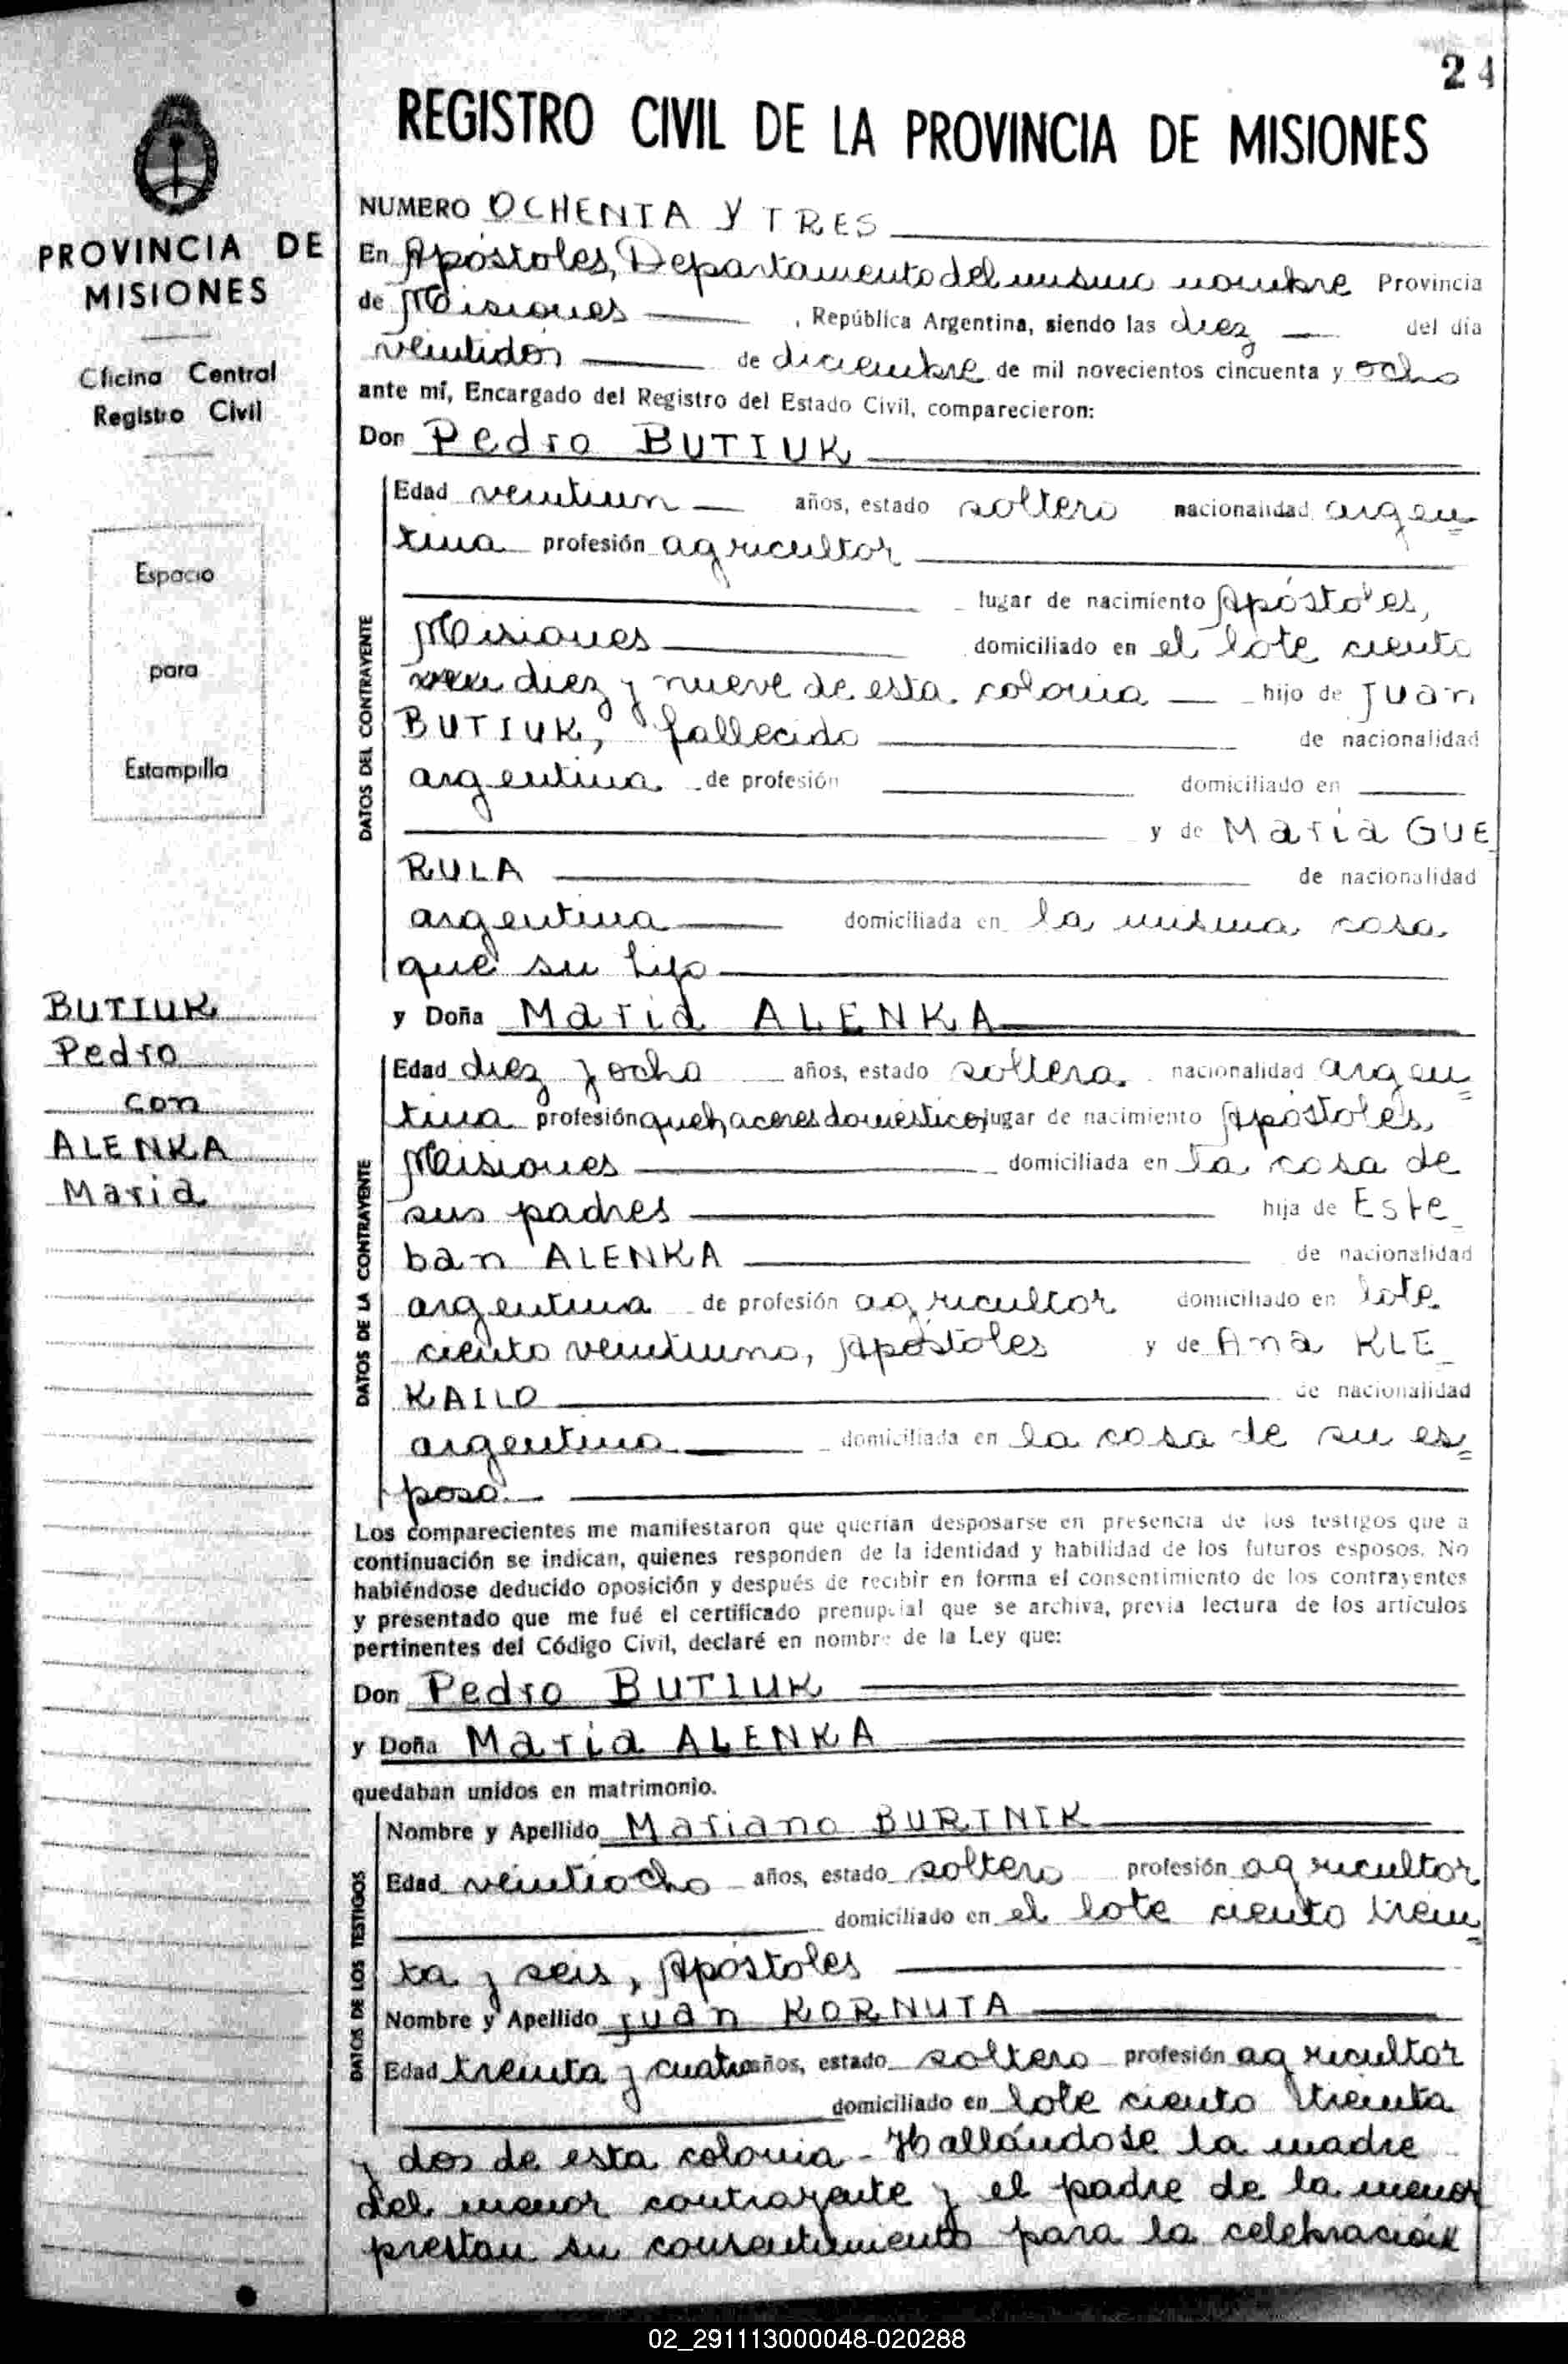 24
REGISTRO CIVIL DE LA PROVINCIA DE MISIONES
PROVINCIA DE
MISIONES
Oficina Central
Registro Civil
Espacio
para
Estampilla
BUTIUK
Pedro
con
ALENKA
Maria
NUMERO OCHENTA Y TRES
En Apóstoles, Departamento del mismo nombre Provincia
de Misiones , República Argentina, siendo las diez del día
veintidós de diciembre de mil novecientos cincuenta y ocho
ante mí, Encargado del Registro del Estado Civil, comparecieron:
Don Pedro BUTIUK
DATOS DEL CONTRAYENTE
Edad veintiun años, estado soltero nacionalidad argen=
tina profesión agricultor
lugar de nacimiento Apóstoles,
Misiones domiciliado en el lote ciento
diez y nueve de esta colonia hijo de Juan
BUTIUK, fallecido de nacionalidad
argentina de profesión domiciliado en
y de Maria GUE
RULA de nacionalidad
argentina domiciliada en la misma casa
que su hijo
y Doña Maria ALENKA
DATOS DE LA CONTRAYENTE
Edad diez y ocho años, estado soltera nacionalidad argen=
tina profesión quehaceres domésticos lugar de nacimiento Apóstoles,
Misiones domiciliada en la casa de
sus padres hija de Este_
ban ALENKA de nacionalidad
argentina de profesión agricultor domiciliado en lote
ciento veintiuno, Apóstoles y de Ana KLE_
KAILO de nacionalidad
argentina domiciliada en la casa de su es=
poso.
Los comparecientes me manifestaron que querían desposarse en presencia de los testigos que a
continuación se indican, quienes responden de la identidad y habilidad de los futuros esposos. No
habiéndose deducido oposición y después de recibir en forma el consentimiento de los contrayentes
y presentado que me fué el certificado prenupcial que se archiva, previa lectura de los artículos
pertinentes del Código Civil, declaré en nombre de la Ley que:
Don Pedro BUTIUK
y Doña Maria ALENKA
quedaban unidos en matrimonio.
DATOS DE LOS TESTIGOS
Nombre y Apellido Mariano BURTNIK
Edad veintiocho años, estado soltero profesión agricultor
domiciliado en el lote ciento trein=
ta y seis, Apóstoles
Nombre y Apellido Juan KORNUTA
Edad treinta y cuatro años, estado soltero profesión agricultor
domiciliado en lote ciento treinta
y dos de esta colonia - Hallándose la madre
del menor contrayente y el padre de la menor
prestan su consentimiento para la celebración
02_291113000048-020288